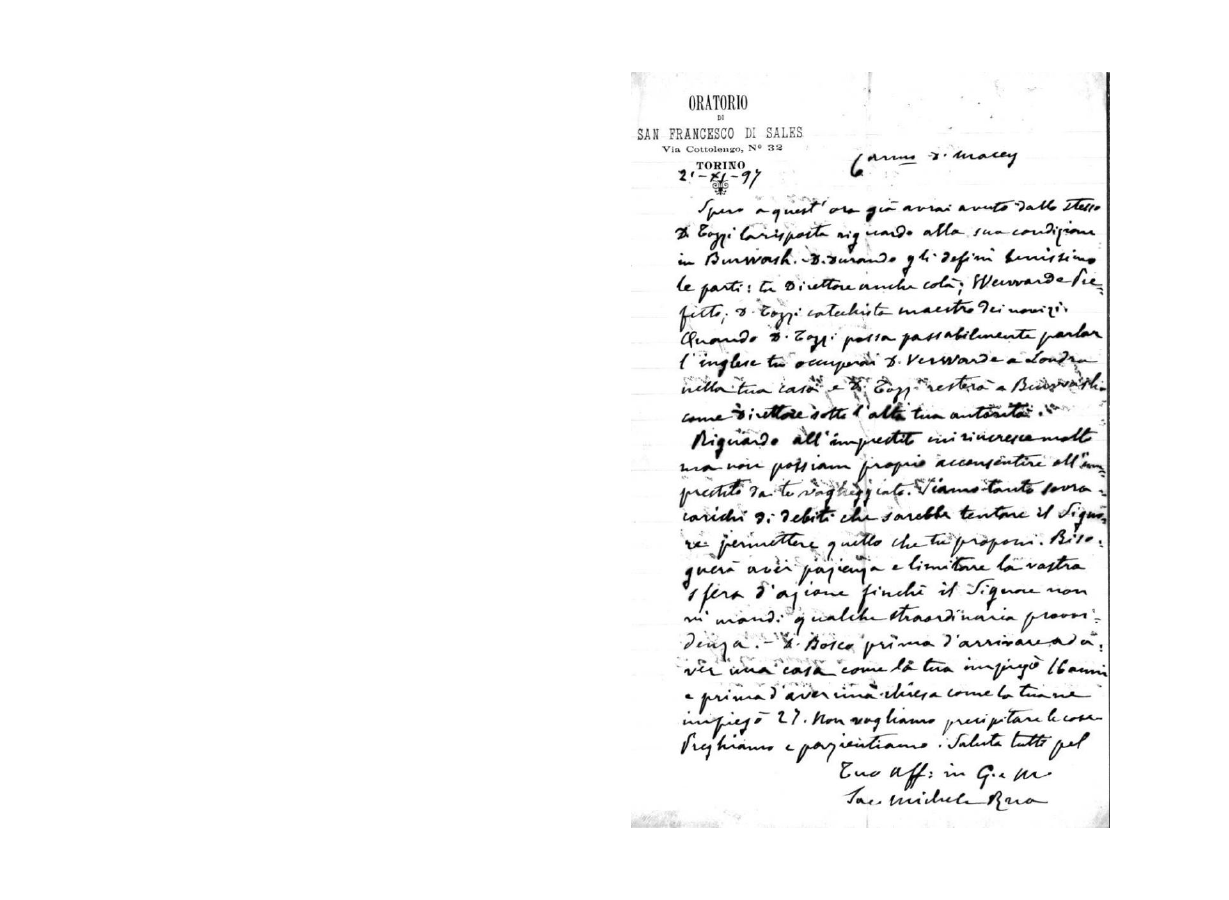 ORATORIO
DI
SAN FRANCESCO DI SALES
Via Cottolengo, Nº 32
TORINO
21-XI-97
Carmo D. Macey
Spero a quest' ora già avrai avuto dallo stesso
D. Tozzi la risposta riguardo alla sua condizione
in Burwash. D. Durando gli definì benissimo
le parti: tu Direttore anche colà; Verwarde Pre-
fetto; D. Tozzi catechista maestro dei novizi.
Quando D. Tozzi possa passabilmente parlar
l'inglese tu occuperai D. Verwarde a Londra
nella tua casa e D. Tozzi resterà a Burwash
come Direttore sotto l'alta tua autorità.
Riguardo all'imprestito mi rincresce molto
ma non possiam proprio acconsentire all'im-
prestito da te vagheggiato. Siamo tanto sovra-
carichi di debiti che sarebbe tentare il Signo-
re permettere quello che tu proponi. Biso-
gnerà aver pazienza e limitare la vostra
sfera d'azione finchè il Signore non
vi mandi qualche straordinaria provvi-
denza. - D. Bosco prima d'arrivare ad a-
ver una casa come la tua impiegò 16 anni
e prima d'aver una chiesa come la tua ne
impiegò 27. Non vogliamo precipitare le cose
Preghiamo e pazientiamo. Saluta tutti pel
Tuo Aff: in G. e M.
Sac. Michele Rua